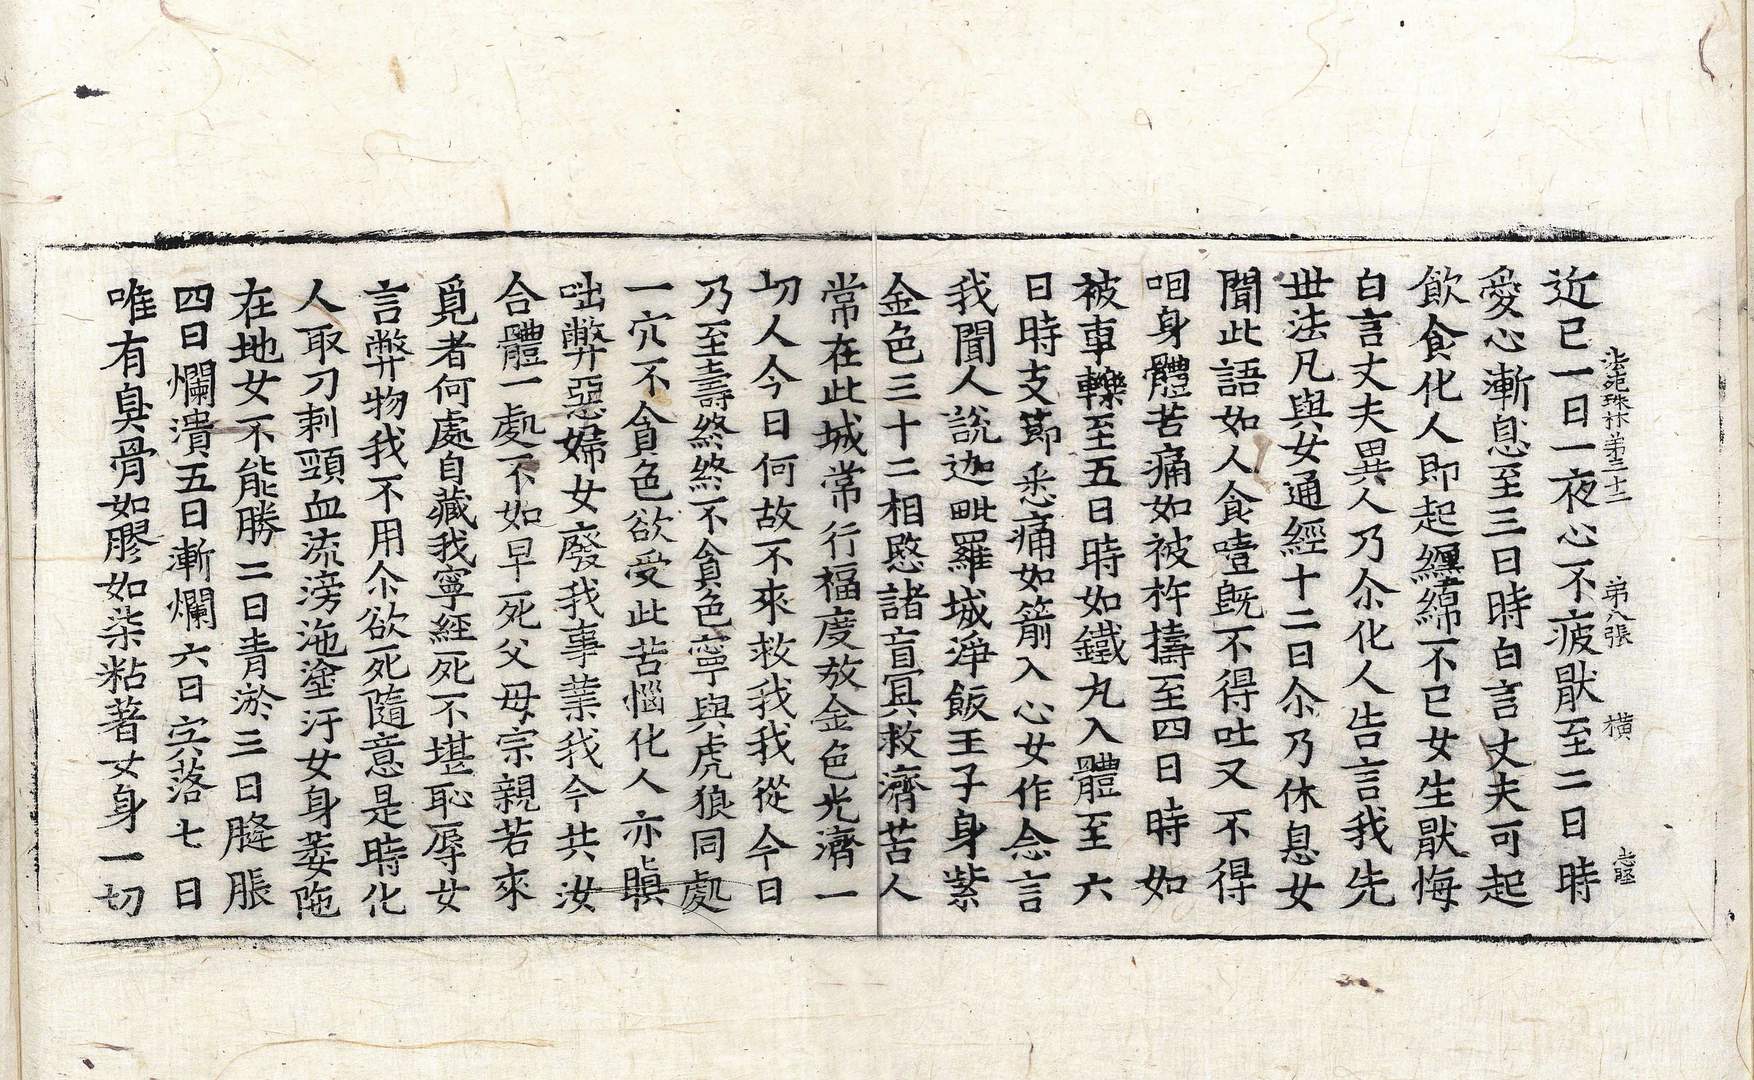 法苑珠林第三十二 第八張 橫
近已一日一夜心不疲猒至二日時
愛心漸息至三日時白言丈夫可起
飮食化人即起纏綿不已女生猒悔
白言丈夫異人乃尒化人告言我先
世法凡與女通經十二日尒乃休息女
聞此語如人食噎旣不得吐又不得
咽身體苦痛如被杵擣至四日時如
被車轢至五日時如鐵丸入體至六
日時支莭悉痛如箭入心女作念言
我聞人說迦毗羅城淨飯王子身紫
金色三十二相愍諸盲冥救濟苦人
常在此城常行福度放金色光濟一
切人今日何故不來救我我從今日
乃至壽終終不貪色寧與虎狼同處
一穴不貪色欲受此苦惱化人亦瞋
咄弊惡婦女廢我事業我今共汝
合體一處不如早死父母宗親若來
覓者何處自藏我寧經死不堪恥辱女
言弊物我不用尒欲死隨意是時化
人取刀刺頸血流滂沲塗汙女身萎陁
在地女不能勝二日青淤三日膖脹
四日爛潰五日漸爛六日宍落七日
唯有臭骨如膠如柒粘著女身一切